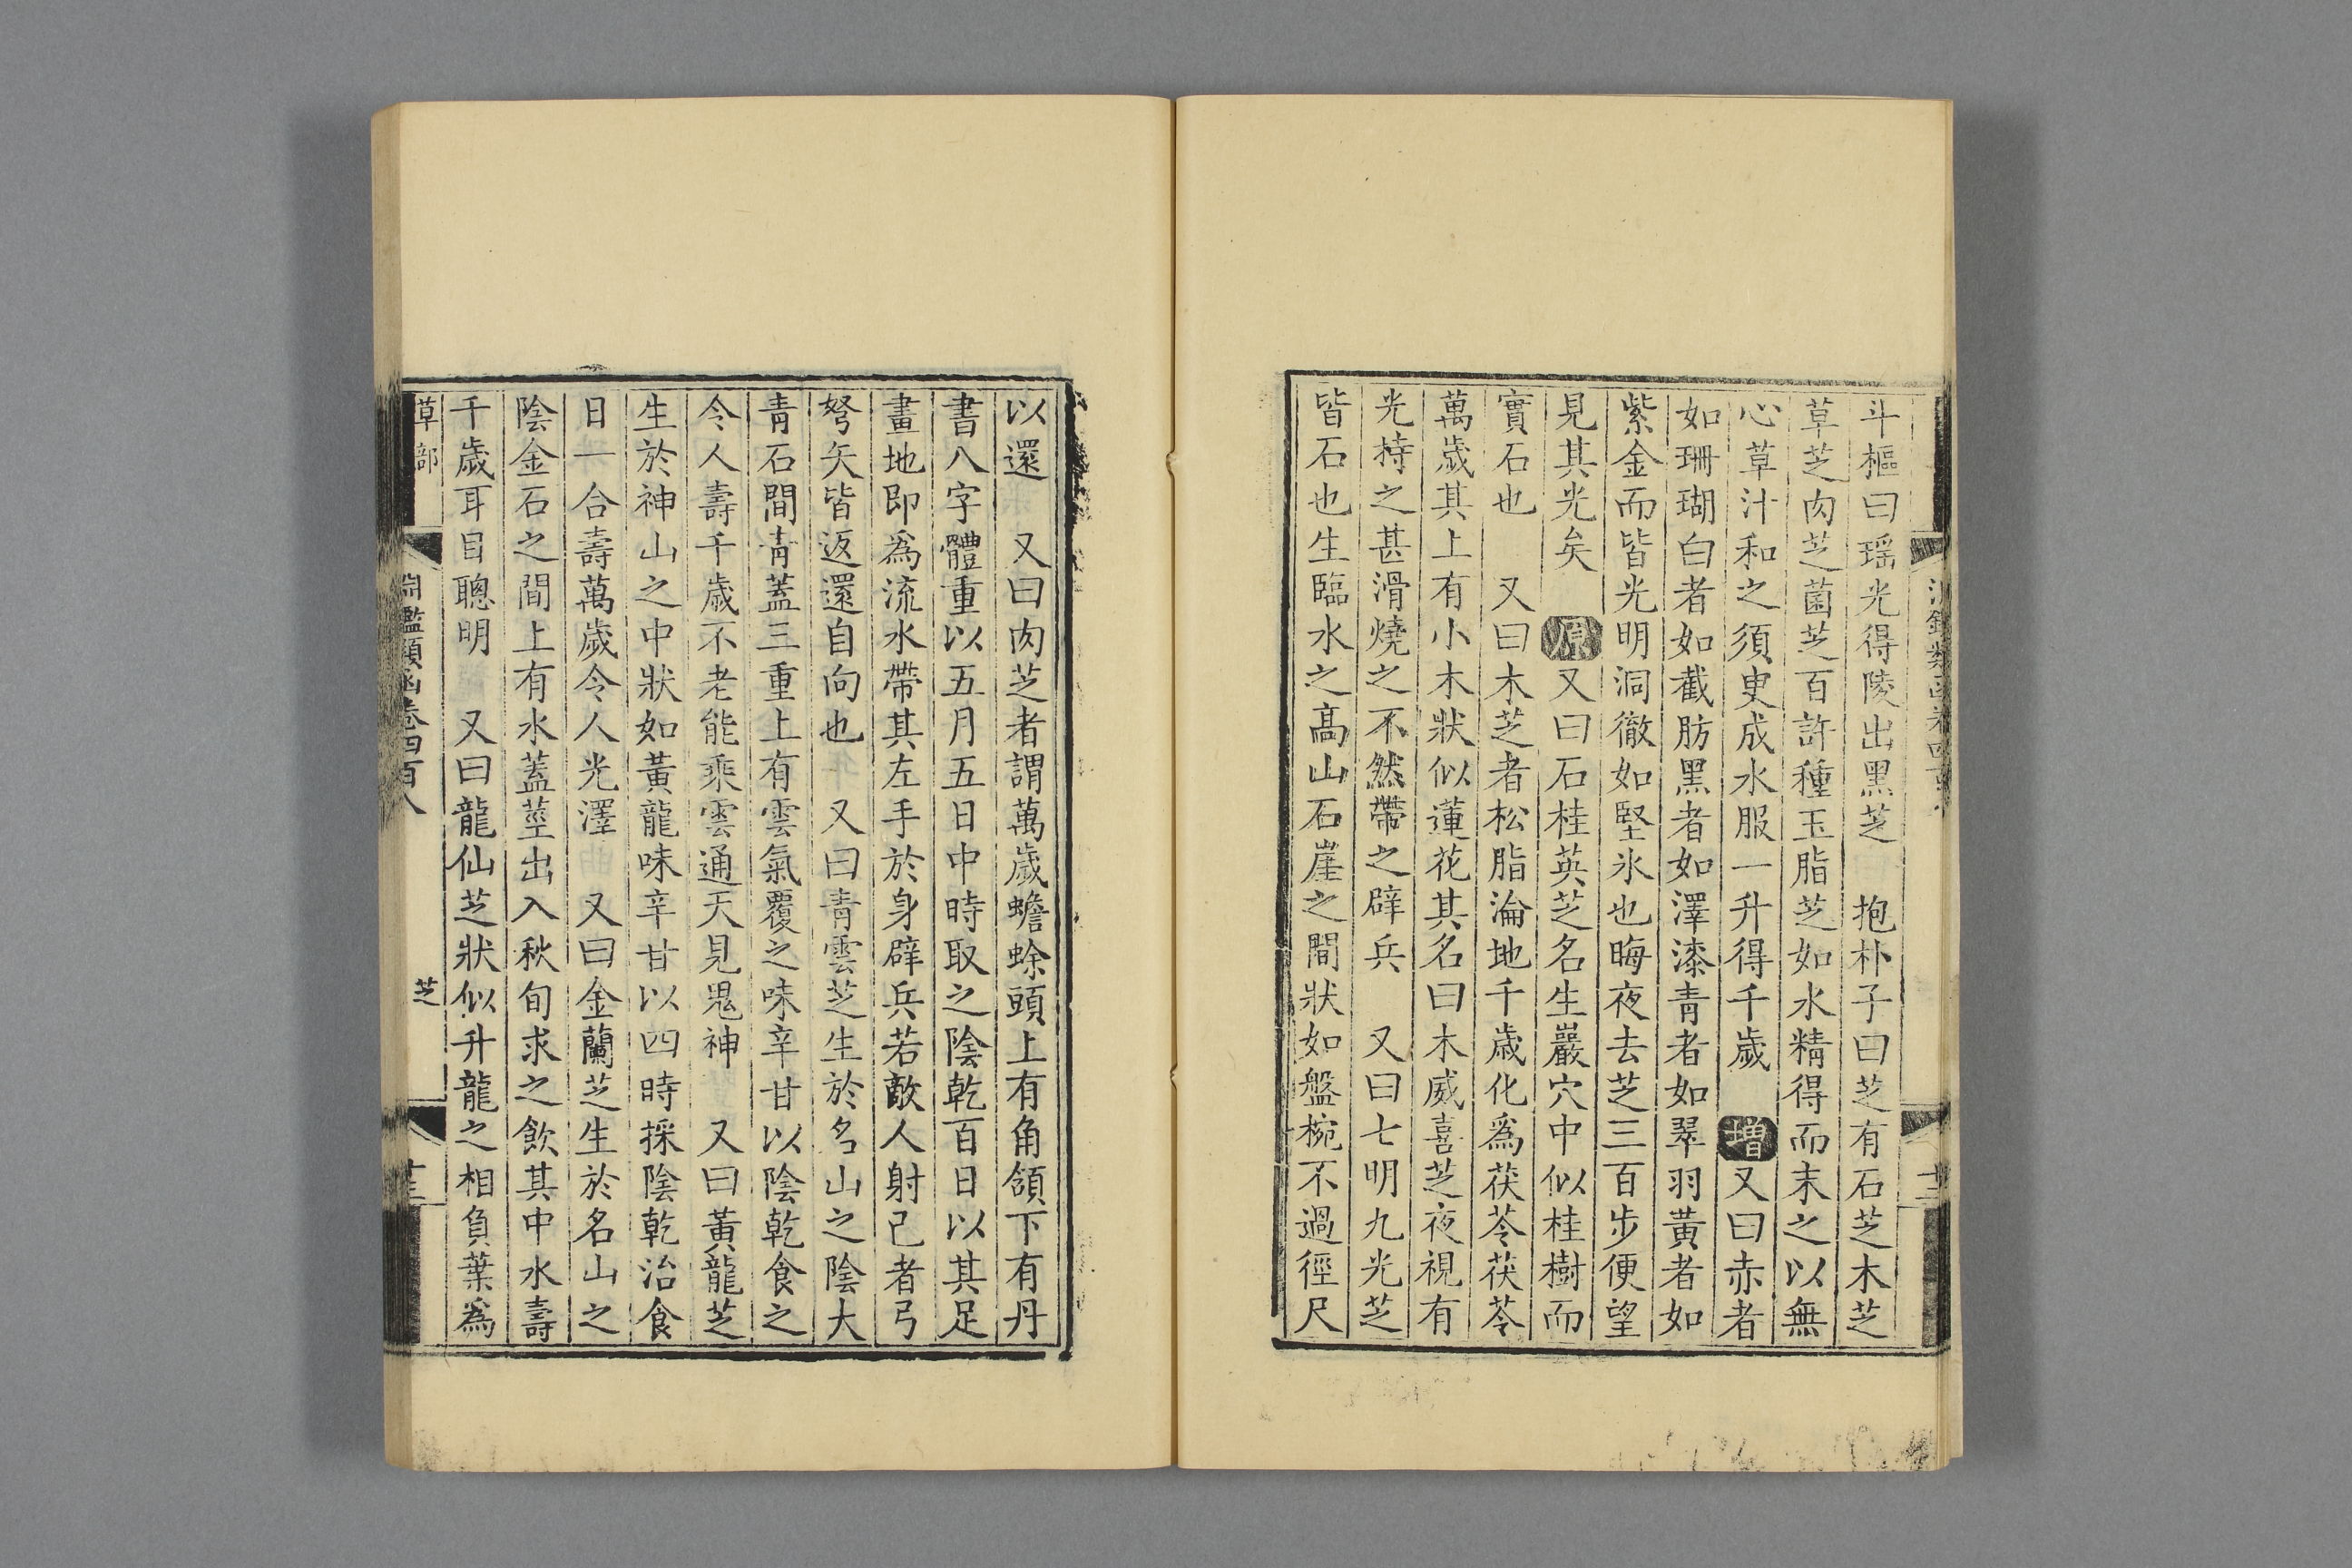 斗樞曰瑶光得陵出黑芝　抱朴子曰芝有石芝木芝
草芝肉芝菌芝百許種玉脂芝如水精得而末之以無
心草汁和之須臾成水服一升得千歲　增又曰赤者
如珊瑚白者如截肪黑者如澤漆青者如翠羽黃者如
紫金而皆光明洞徹如堅氷也晦夜去芝三百步便望
見其光矣　原又曰石桂英芝名生巖穴中似桂樹而
實石也　又曰木芝者松脂淪地千歲化爲茯苓茯苓
萬歲其上有小木狀似蓮花其名曰木威喜芝夜視有
光持之甚滑燒之不然帶之辟兵　又曰七明九光芝
皆石也生臨水之高山石崖之間狀如盤椀不過徑尺
以還　又曰肉芝者謂萬歲蟾蜍頭上有角頷下有丹
書八字體重以五月五日中時取之陰乾百日以其足
畫地即爲流水帶其左手於身辟兵若敵人射己者弓
弩矢皆返還自向也　又曰青雲芝生於名山之陰大
青石間青蓋三重上有雲氣覆之味辛甘以陰乾食之
令人壽千歲不老能乘雲通天見鬼神　又曰黃龍芝
生於神山之中狀如黃龍味辛甘以四時採陰乾治食
日一合壽萬歲令人光澤　又曰金蘭芝生於名山之
陰金石之間上有水蓋莖出入秋旬求之飲其中水壽
千歲耳目聰明　又曰龍仙芝狀似升龍之相負葉爲
草部　淵鑑類函卷四百八　芝　十三